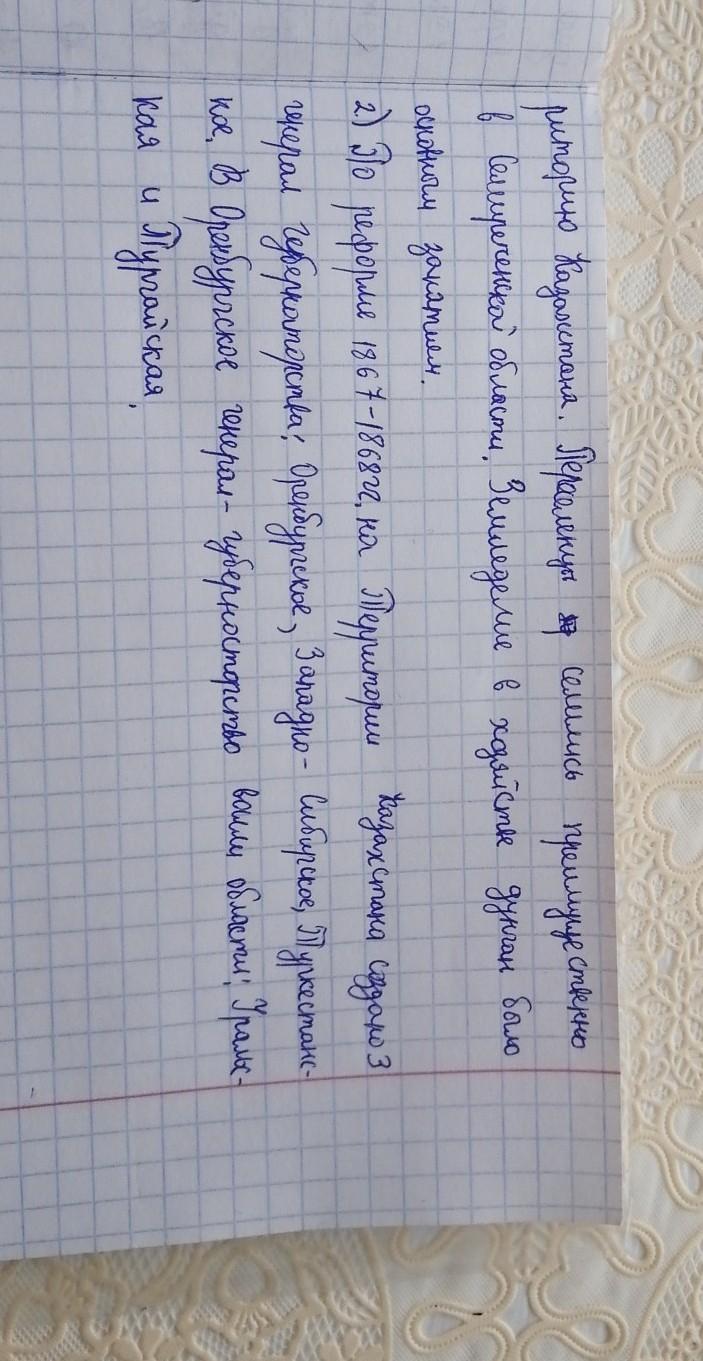 риторию Казахстана. Переселенцы селились преимущественно
в Семиреченской области. Земледелие в хозяйстве дунган было
основным занятием.
2) По реформе 1867-1868гг, на Территории Казахстана создано 3
генерал губернаторства: Оренбургское, Западно-Сибирское, Туркестанс-
кое. В Оренбургское генерал-губернаторство вошли области: Уральс-
кая и Тургайская.